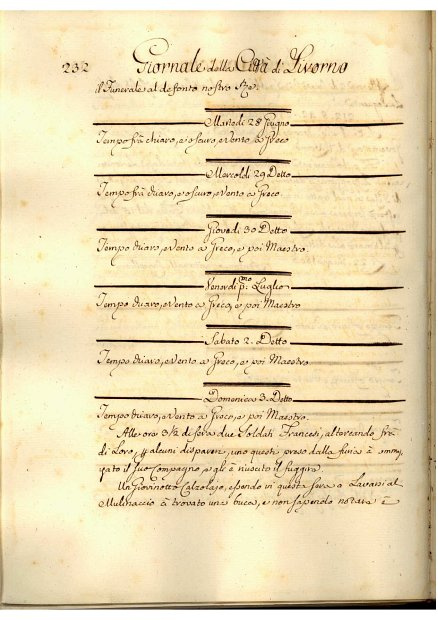 232 Giornale della Città di Livorno
il Funerale al defonto nostro Rè.
Martedi 28 Giugno
Tempo frà chiaro, e oscuro, e Vento à Greco
Mercoldi 29 Detto
Tempo frà chiaro, e oscuro, e Vento à Greco.
Giovedi 30 Detto
Tempo chiaro, e Vento à Greco, e poi Maestro.
Venerdi p.mo Luglio
Tempo chiaro, e Vento à Greco, e poi Maestro
Sabato 2. Detto
Tempo chiaro, e Vento à Greco, e poi Maestro
Domenica 3. Detto
Tempo chiaro, e Vento à Greco, e poi Maestro.
Alle ore 3½ di sera due Soldati Francesi, altercando frà
di Loro, alcuni dispareri, uno questi preso dalla furia à
il suo Compagno, e gli è riuscito il fuggire.
Un Giovinotto Calzolajo, essendo in questa sera à Lavarsi al
Mulinaccio à trovato una buca, e non sapendo notare è